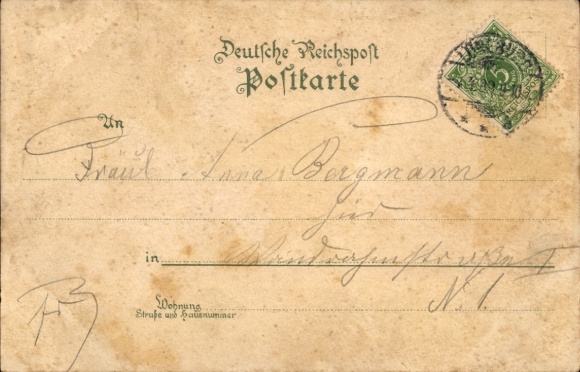 Deutsche Reichspost
Postkarte
An
Fräul. Anna Bergmann
hier
in Wandrahmstraße I
N. 1.
Wohnung
Straße und Hausnummer